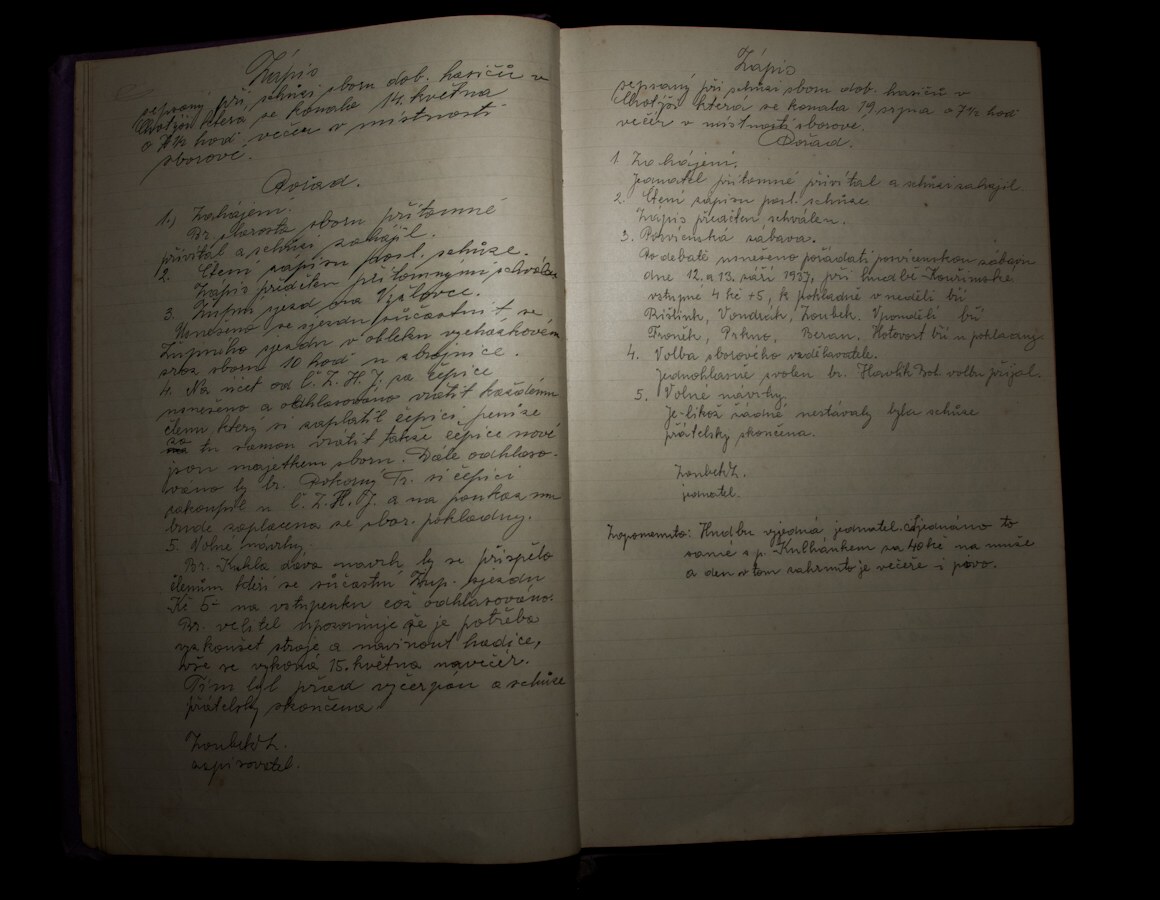 Zápis
sepsaný při schůzi sboru dob. hasičů v
která se konala 14. května
o 7½ hod večer v místnosti
sborové.
Pořad.
1.) Zahájení.
Br. starosta sboru přítomné
přivítal a schůzi zahájil.
2. Čtení zápisu posl. schůze.
Zápis přečten přítomnými schválen
3. Župní sjezd na Vyžlovce.
Usneseno se sjezdu súčastnit, se
Župního sjezdu v obleku vycházkovém
sraz sboru 10 hod u zbrojnice.
4. Na účet od Č. Z. H. J. za čepice
usnešeno a odhlasováno vrátit každému
členu který si zaplatil čepici peníze
za tu samou vrátit takže čepice nové
jsou majetkem sboru. Dále odhlaso-
váno by br. Pokorný Fr. si čepici
zakoupil u Č. Z. H. J. a na poukaz mu
bude zaplacena ze sbor. pokladny.
5. Volné návrhy.
Br. Kukla dává návrh by se přispělo
členům kteří se súčastní Žup. sjezdu
Kč 5- na vstupenku což odhlasováno.
Br. velitel upozorňuje že je potřeba
vyzkoušet stroje a navinout hadice,
vše se vykoná 15. května navečer.
Tím byl pořad vyčerpán a schůze
přátelsky skončena.
Zoubek L.
zapisovatel.
Zápis
sepsaný při schůzi sboru dob. hasičů v
která se konala 19 srpna o 7½ hod
večer v místnosti sborové.
Pořad.
1. Zahájení.
Jednatel přítomné přivítal a schůzi zahájil.
2. Čtení zápisu posl. schůze.
Zápis přečten schválen.
3. Posvícenská zábava.
Po debatě usnešeno pořádati posvícenskou zábavu
dne 12. a 13. září 1937. při hudbě Kouřimské.
vstupné 4 kč +5, k pokladně v neděli bří
Vondrák, Zoubek. V pondělí bří
Froněk, Prkno, Beran. Hotovost bří u pokladny.
4. Volba sborového vzdělavatele.
Jednohlasně zvolen br. Havlík Bot. volbu přijal.
5. Volné návrhy.
Je-likož žádné nestávaly byla schůze
přátelsky skončena.
Zoubek L.
jednatel.
Zapomenuto: Hudbu vyjedná jednatel. Sjednáno to
samé s p. Kulhánkem za 40 kč na muže
a den v tom zahrnuto je večeře i pivo.